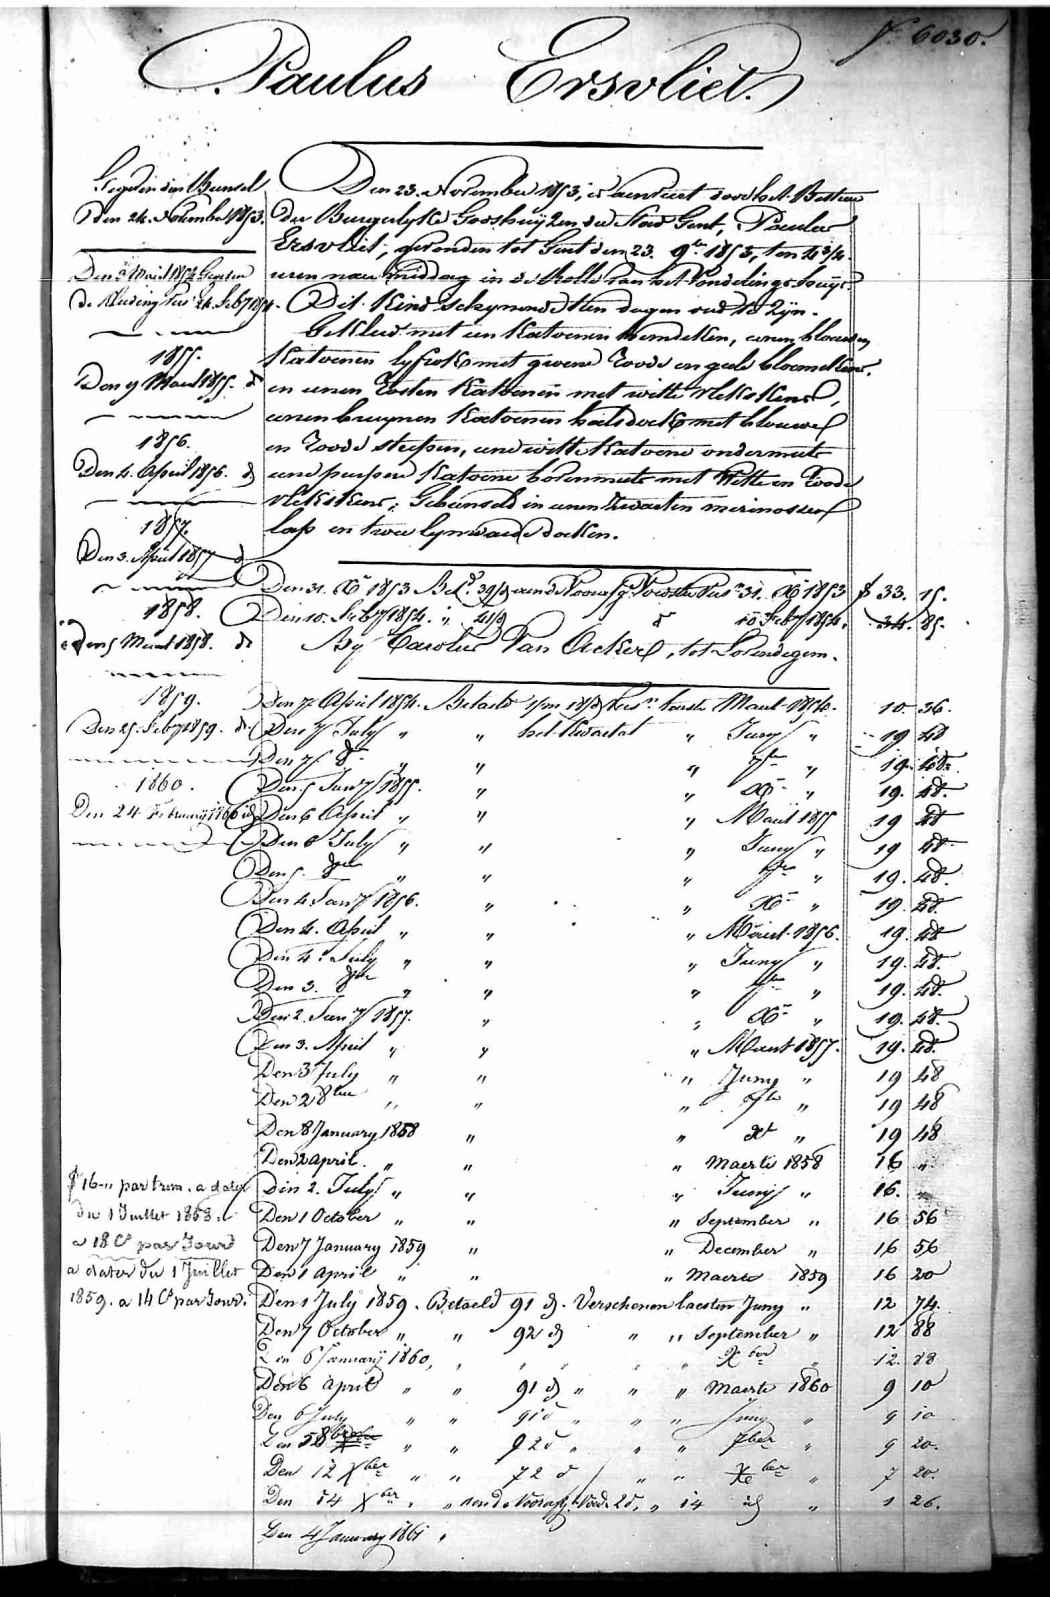 6030.
Paulus Ersvliet.
Den 23. November 1853, is aenveert door het Bestuer
der Burgerlyke Godshuyzen der Stad Gent, Paulus
Ersvliet, gevonden tot Gent den 23. 9br 1853, ten 4 3/4
uren nae middag in de Rolle van het Vondelingshuys
Dit kind schynende tien dagen oud te zyn.
Gekleed met een katoenen hemdeken, eenen blauwen
katoenen lyfrok met groene roode en geele bloemekens,
en eenen rosten katoenen met witte vlekskens,
eenen bruynen katoenen halsdoek met blauwe
en roode streepen, eene witte katoene ondermuts
eene peirsene katoene bovenmuts met witte en roode
vlekskens; Gebunseld in eenen zwarten merinossen
lap en twee lynwaede doeken.
den 24. November 1853.
1855.
Den 9 Maert 1855. d
1856.
Den 4. April 1856. d
1857.
Den 3. April 1857 d
1858.
Den 5 Maert 1858. d
1859.
Den 25. Feby 1859. d
1860.
Den 24 February 1860 d
Den 31. Xr 1853 31. Xr 1853 33. 15.
Den 10. Feby 1854. 10 Feby 1854. 34. 85.
By Carolus Van Ackere, tot Lovendegem.
Den 7 April 1854. Betaeld Maert 1854. 10. 36.
Den 7 July " " het kwartael " Juny " 19 48
Den 7 " " " 7br " 19. 48.
Den 5 Jany 1855. " " Xr " 19. 48.
Den 6 April " " " Maert 1855 19 48
Den 6 July " " " Juny " 19 48
Den 5. 8bre " " " 7br " 19. 48.
Den 4 Jany 1856. " " Xr " 19. 48.
Den 4. April " " " Maert 1856. 19. 48
Den 4. July " " " Juny " 19. 48.
Den 3. 8bre " " " 7br " 19. 48.
Den 2. Jany 1857. " " Xr " 19. 48.
Den 3. April " " " Maert 1857. 19. 48.
Den 3 July " " " Juny " 19 48
Den 2 8bre " " " 7bre " 19 48
Den 8 January 1858 " " Xr " 19 48
Den 2 april " " " Maerte 1858 16 "
Den 2. July " " " Juny " 16. "
Den 1 October " " " September " 16 56
Den 7 January 1859 " " December " 16 56
Den 1 april " " " Maerte 1859 16 20
f 16-" par trim. a dater
du 1 Juillet 1858.
a 18 Cs par Jour
a dater du 1 Juillet
1859. a 14 Cs par Jour.
Den 1 July 1859. Betaeld 91 d. Verschenen laesten Juny " 12 74.
Den 7 October " " 92 d " " September " 12 88
Den 6 January 1860, " " " " " Xber " 12. 88
Den 6 april " " 91 d " " " Maerte 1860 9 10
Den 6 July " " 91 d " " " Juny " 9 10
Den 5 8ber " " 92 d " " " 7ber " 9 20.
Den 12 Xber " " 72 d " " Xber " 7 20.
Den 14 Xber " " " 14 d " 1 26.
Den 4 January 1861 "